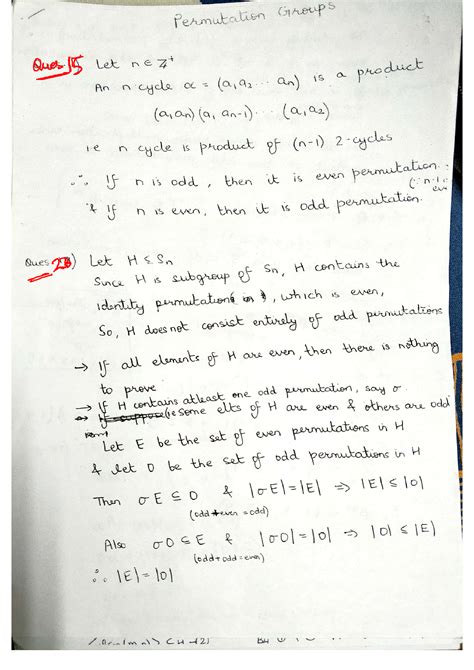 Permutation Groups
Ques 15) Let n ∈ Z⁺
An n cycle α = (a₁ a₂ ... aₙ) is a product
(a₁ aₙ)(a₁ aₙ₋₁) ... (a₁ a₂)
i.e n cycle is product of (n-1) 2-cycles
∴ If n is odd, then it is even permutation.
& If n is even, then it is odd permutation.
Ques ) Let H ≤ Sₙ
Since H is subgroup of Sₙ, H contains the
identity permutation, which is even,
So, H does not consist entirely of odd permutations
→ If all elements of H are even, then there is nothing
to prove
→ If H contains atleast one odd permutation, say σ
(ie some elts of H are even & others are odd
Let E be the set of even permutations in H
& let O be the set of odd permutations in H
Then σE ⊆ O & |σE| = |E| ⇒ |E| ≤ |O|
(odd + even = odd)
Also σO ⊆ E & |σO| = |O| ⇒ |O| ≤ |E|
(odd + odd = even)
∴ |E| = |O|